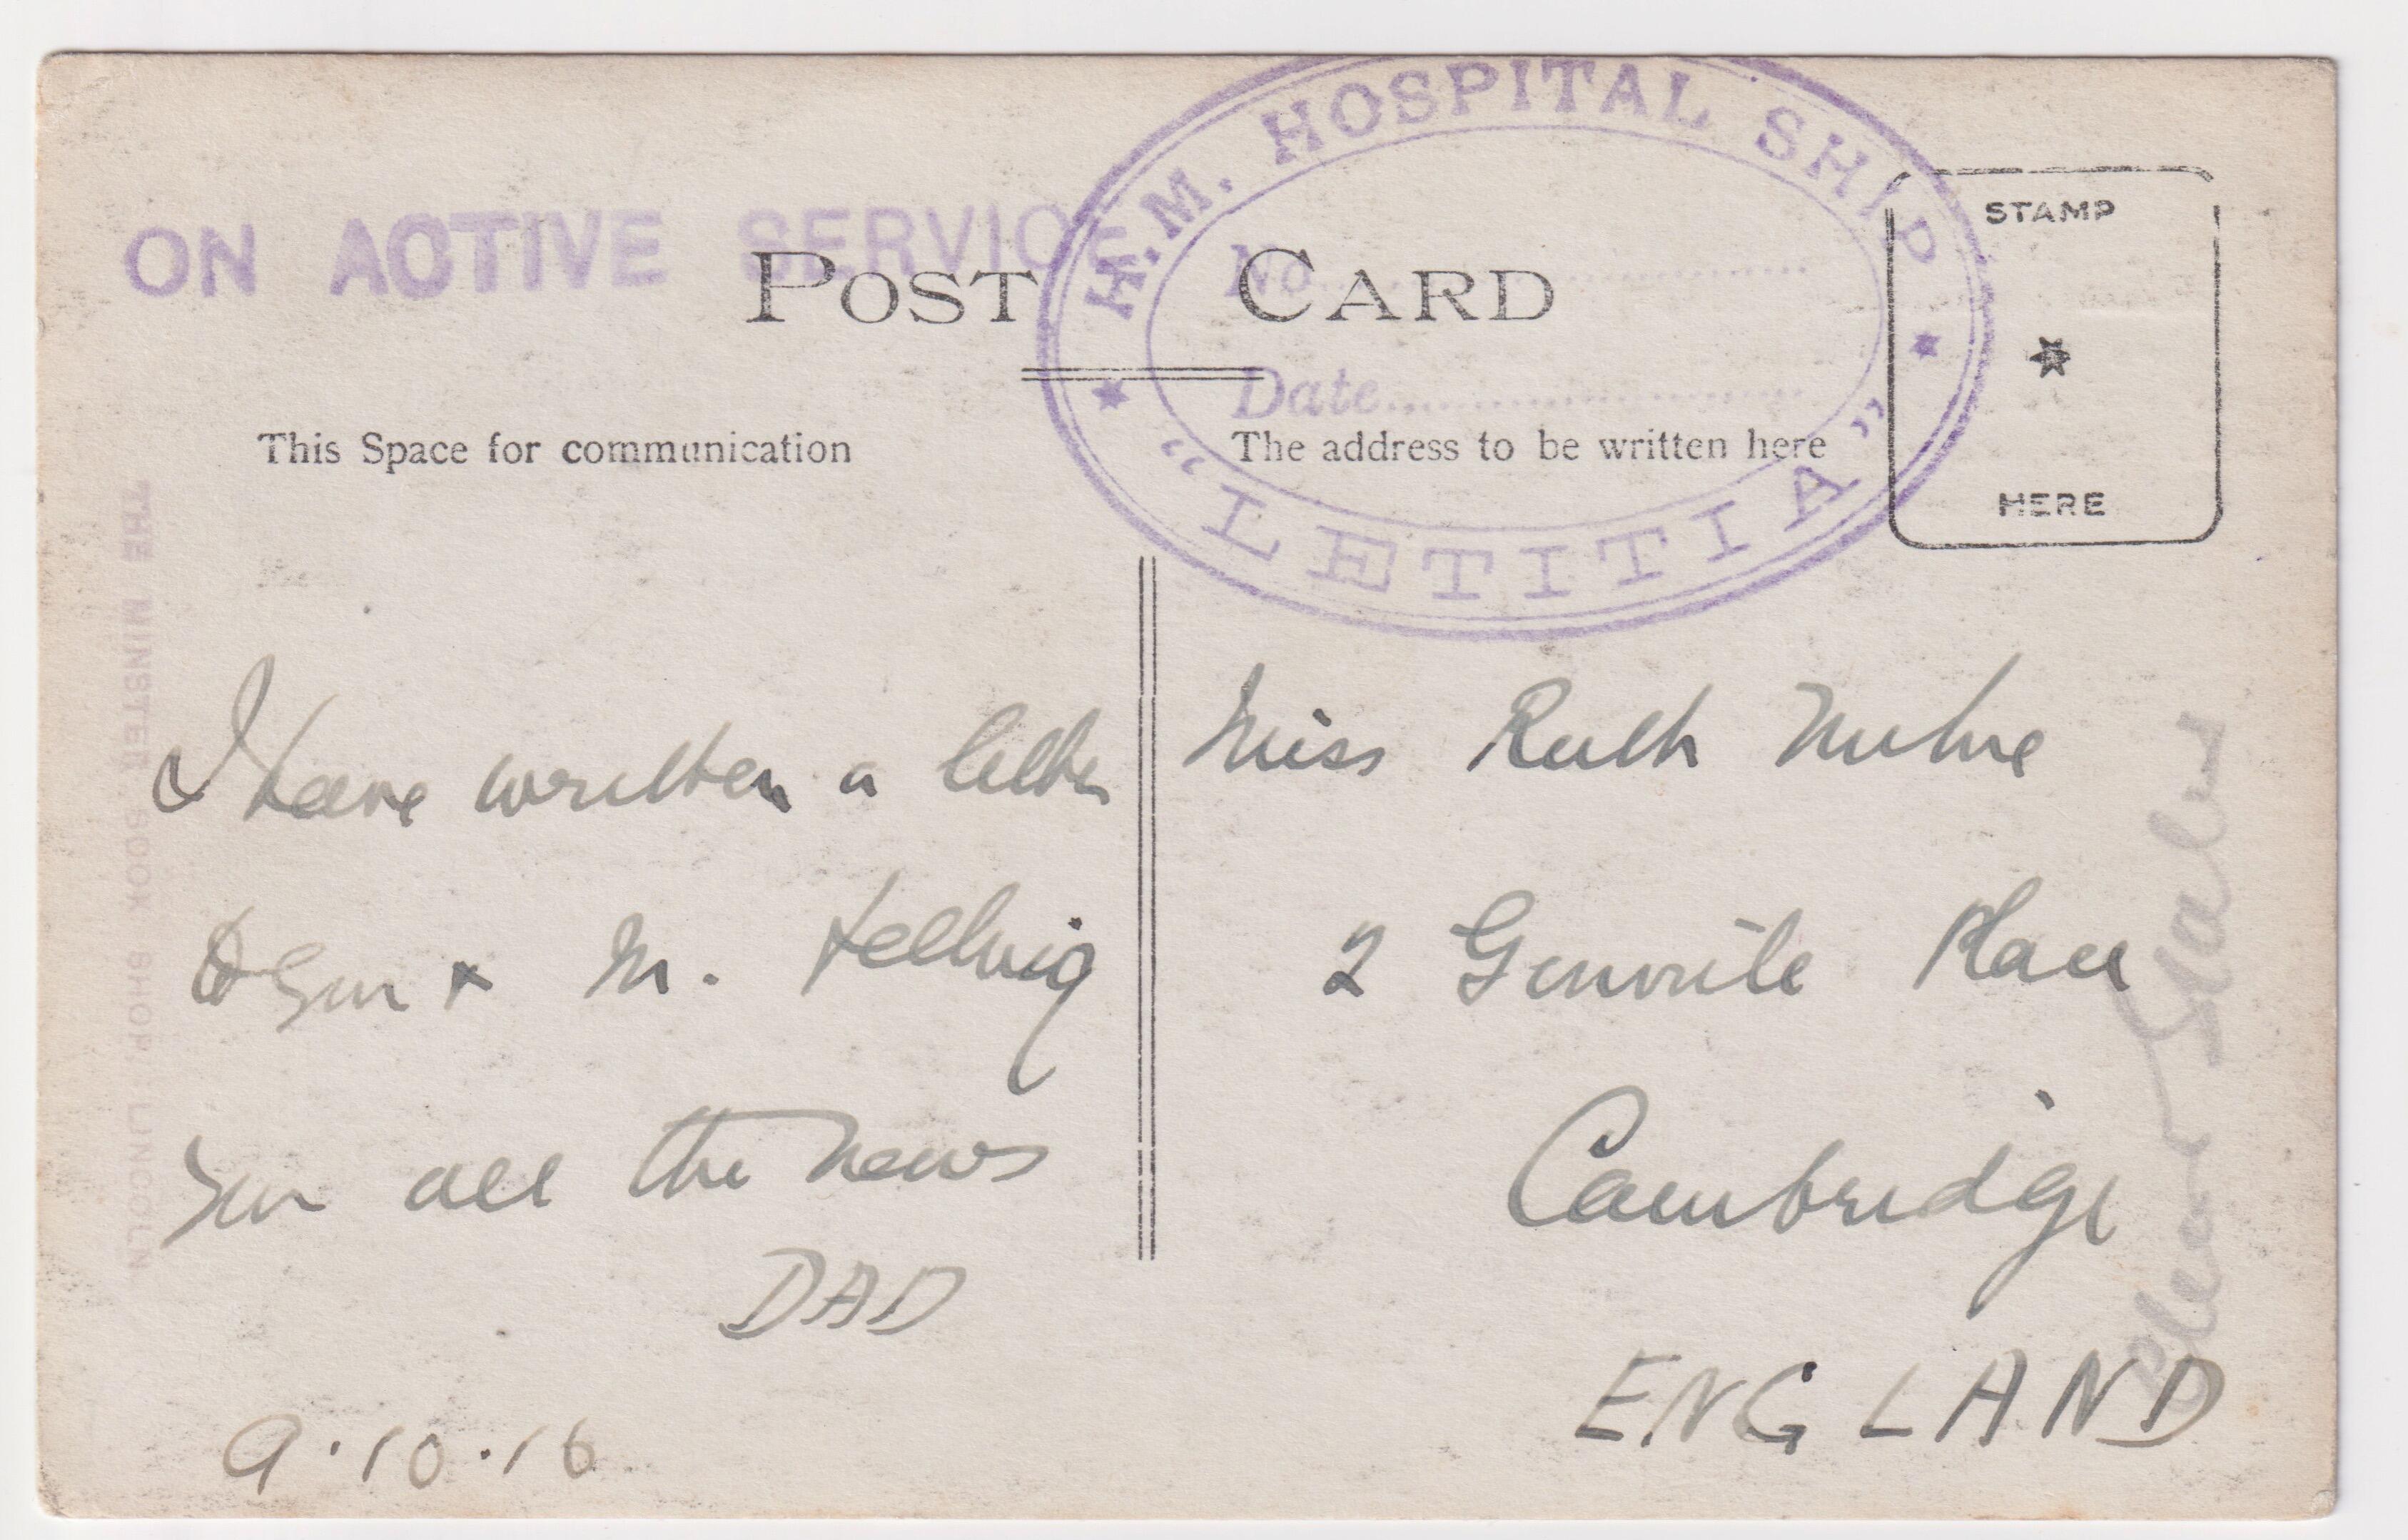 ON ACTIVE SERVICE
H.M. HOSPITAL SHIP
No.
Date
"LETITIA"
POST CARD
STAMP
HERE
This Space for communication
The address to be written here
THE MINSTER BOOK SHOP, LINCOLN
I have written a letter
& M. Hellwig
all the news
DAD
9.10.16
Miss Ruth
2 Glenville Place
Cambridge
ENGLAND